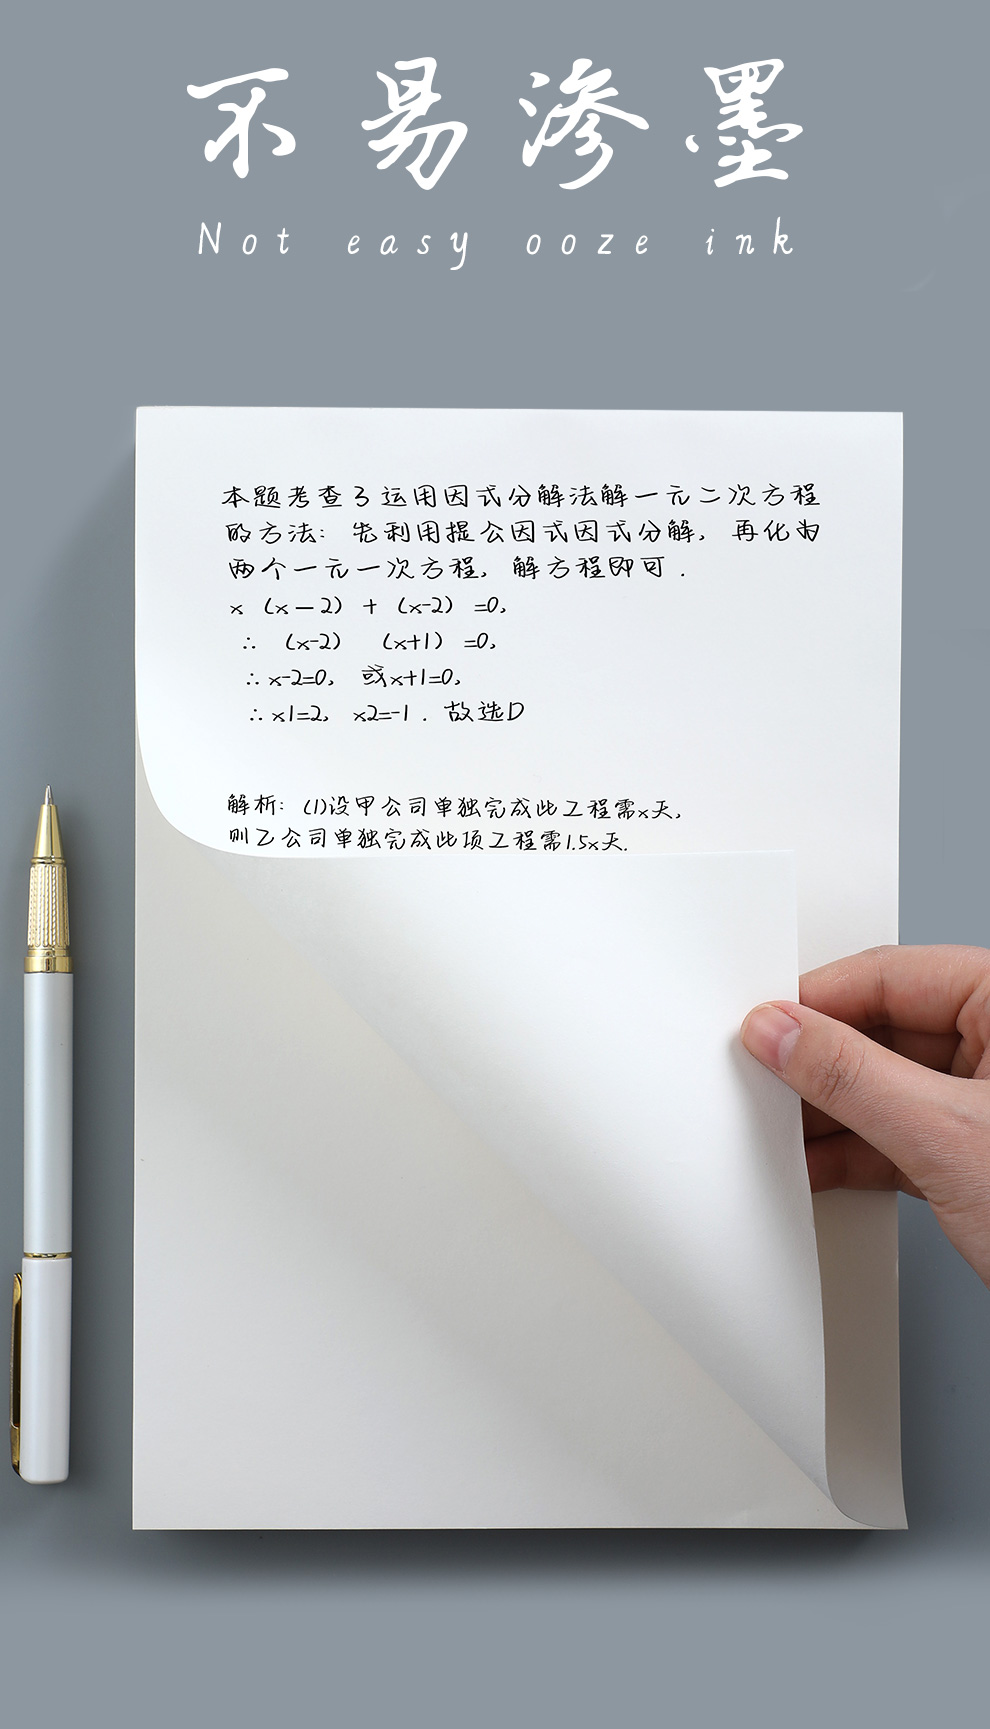 不易渗墨
Not easy ooze ink
本题考查了运用因式分解法解一元二次方程
的方法: 先利用提公因式因式分解, 再化为
两个一元一次方程, 解方程即可.
x (x-2) + (x-2) =0,
∴ (x-2) (x+1) =0,
∴x-2=0, 或x+1=0,
∴x1=2, x2=-1. 故选D
解析: (1)设甲公司单独完成此工程需x天,
则乙公司单独完成此项工程需1.5x天.